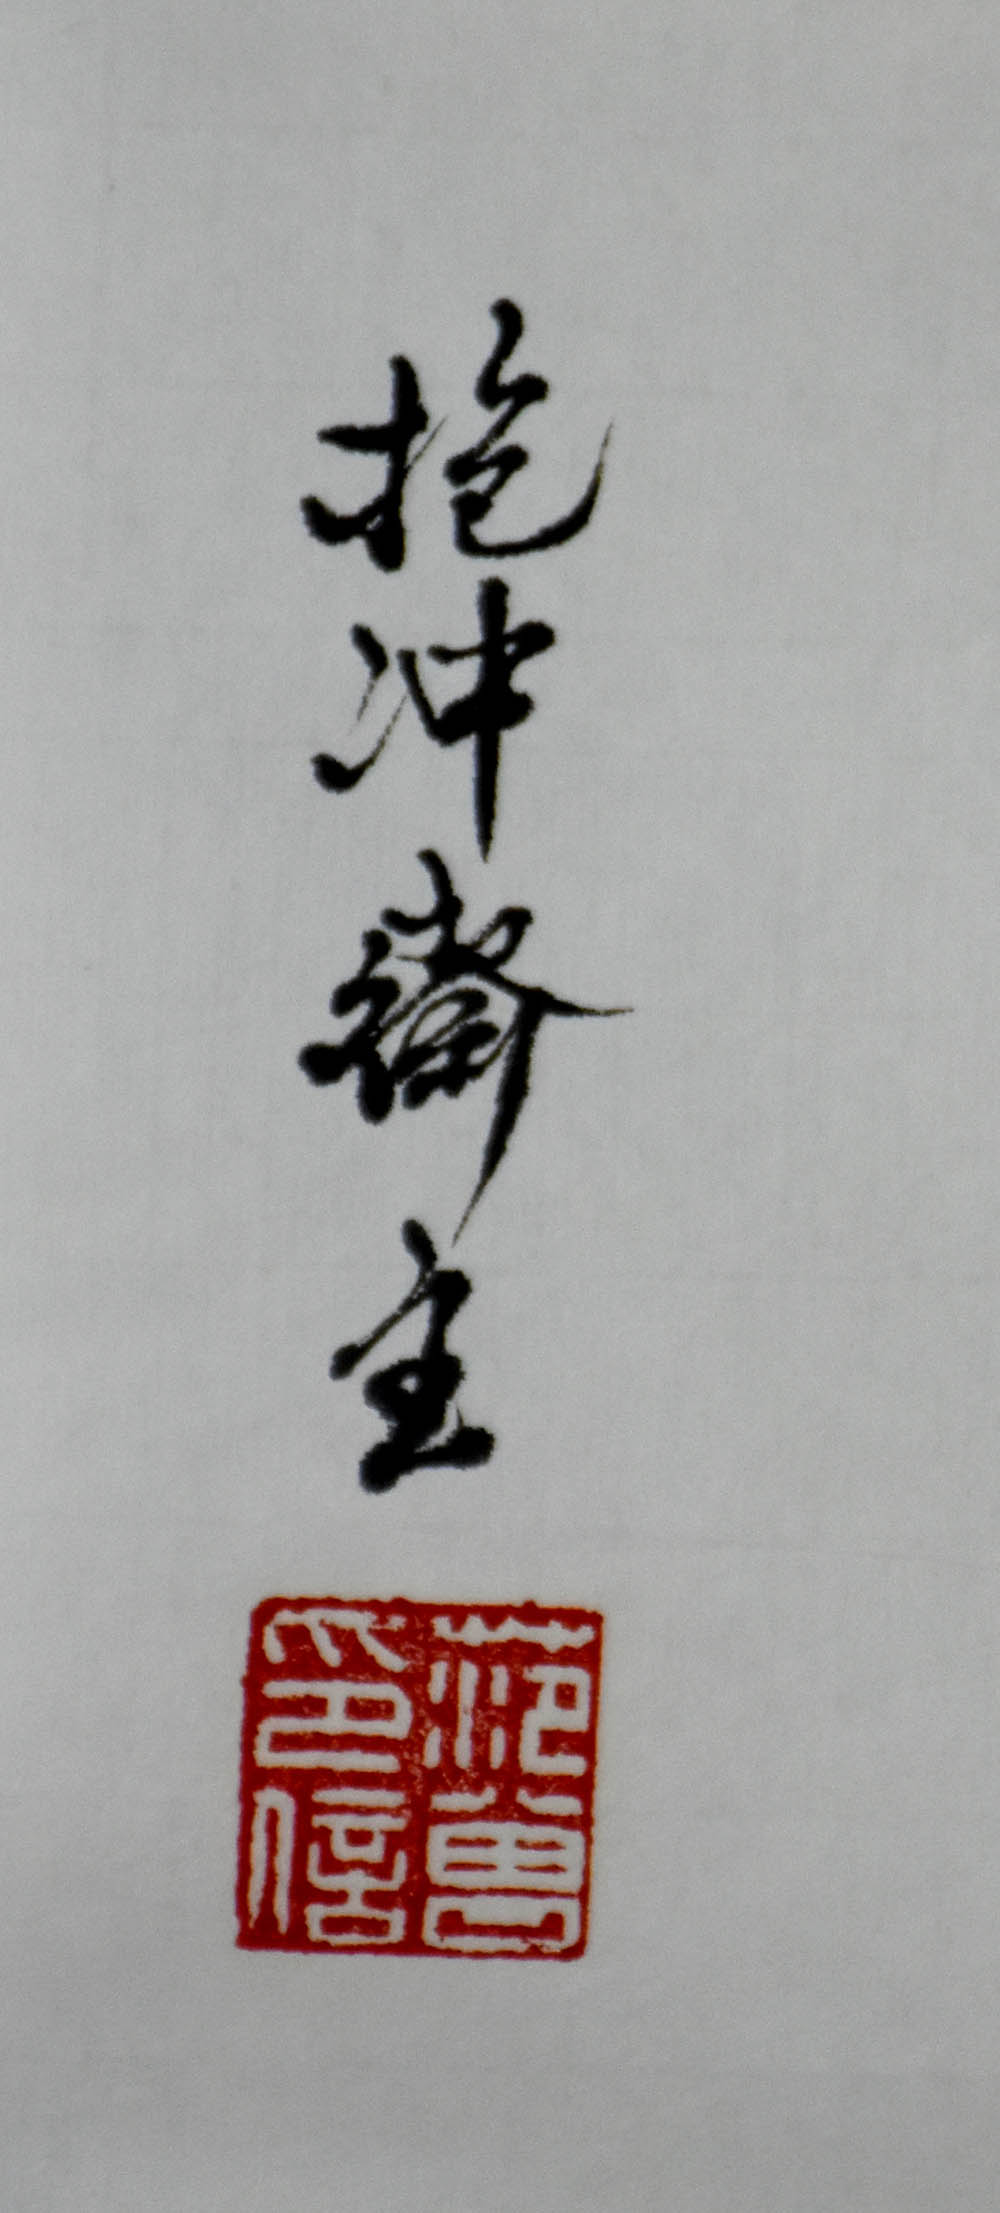 抱冲斋主
范曾印信